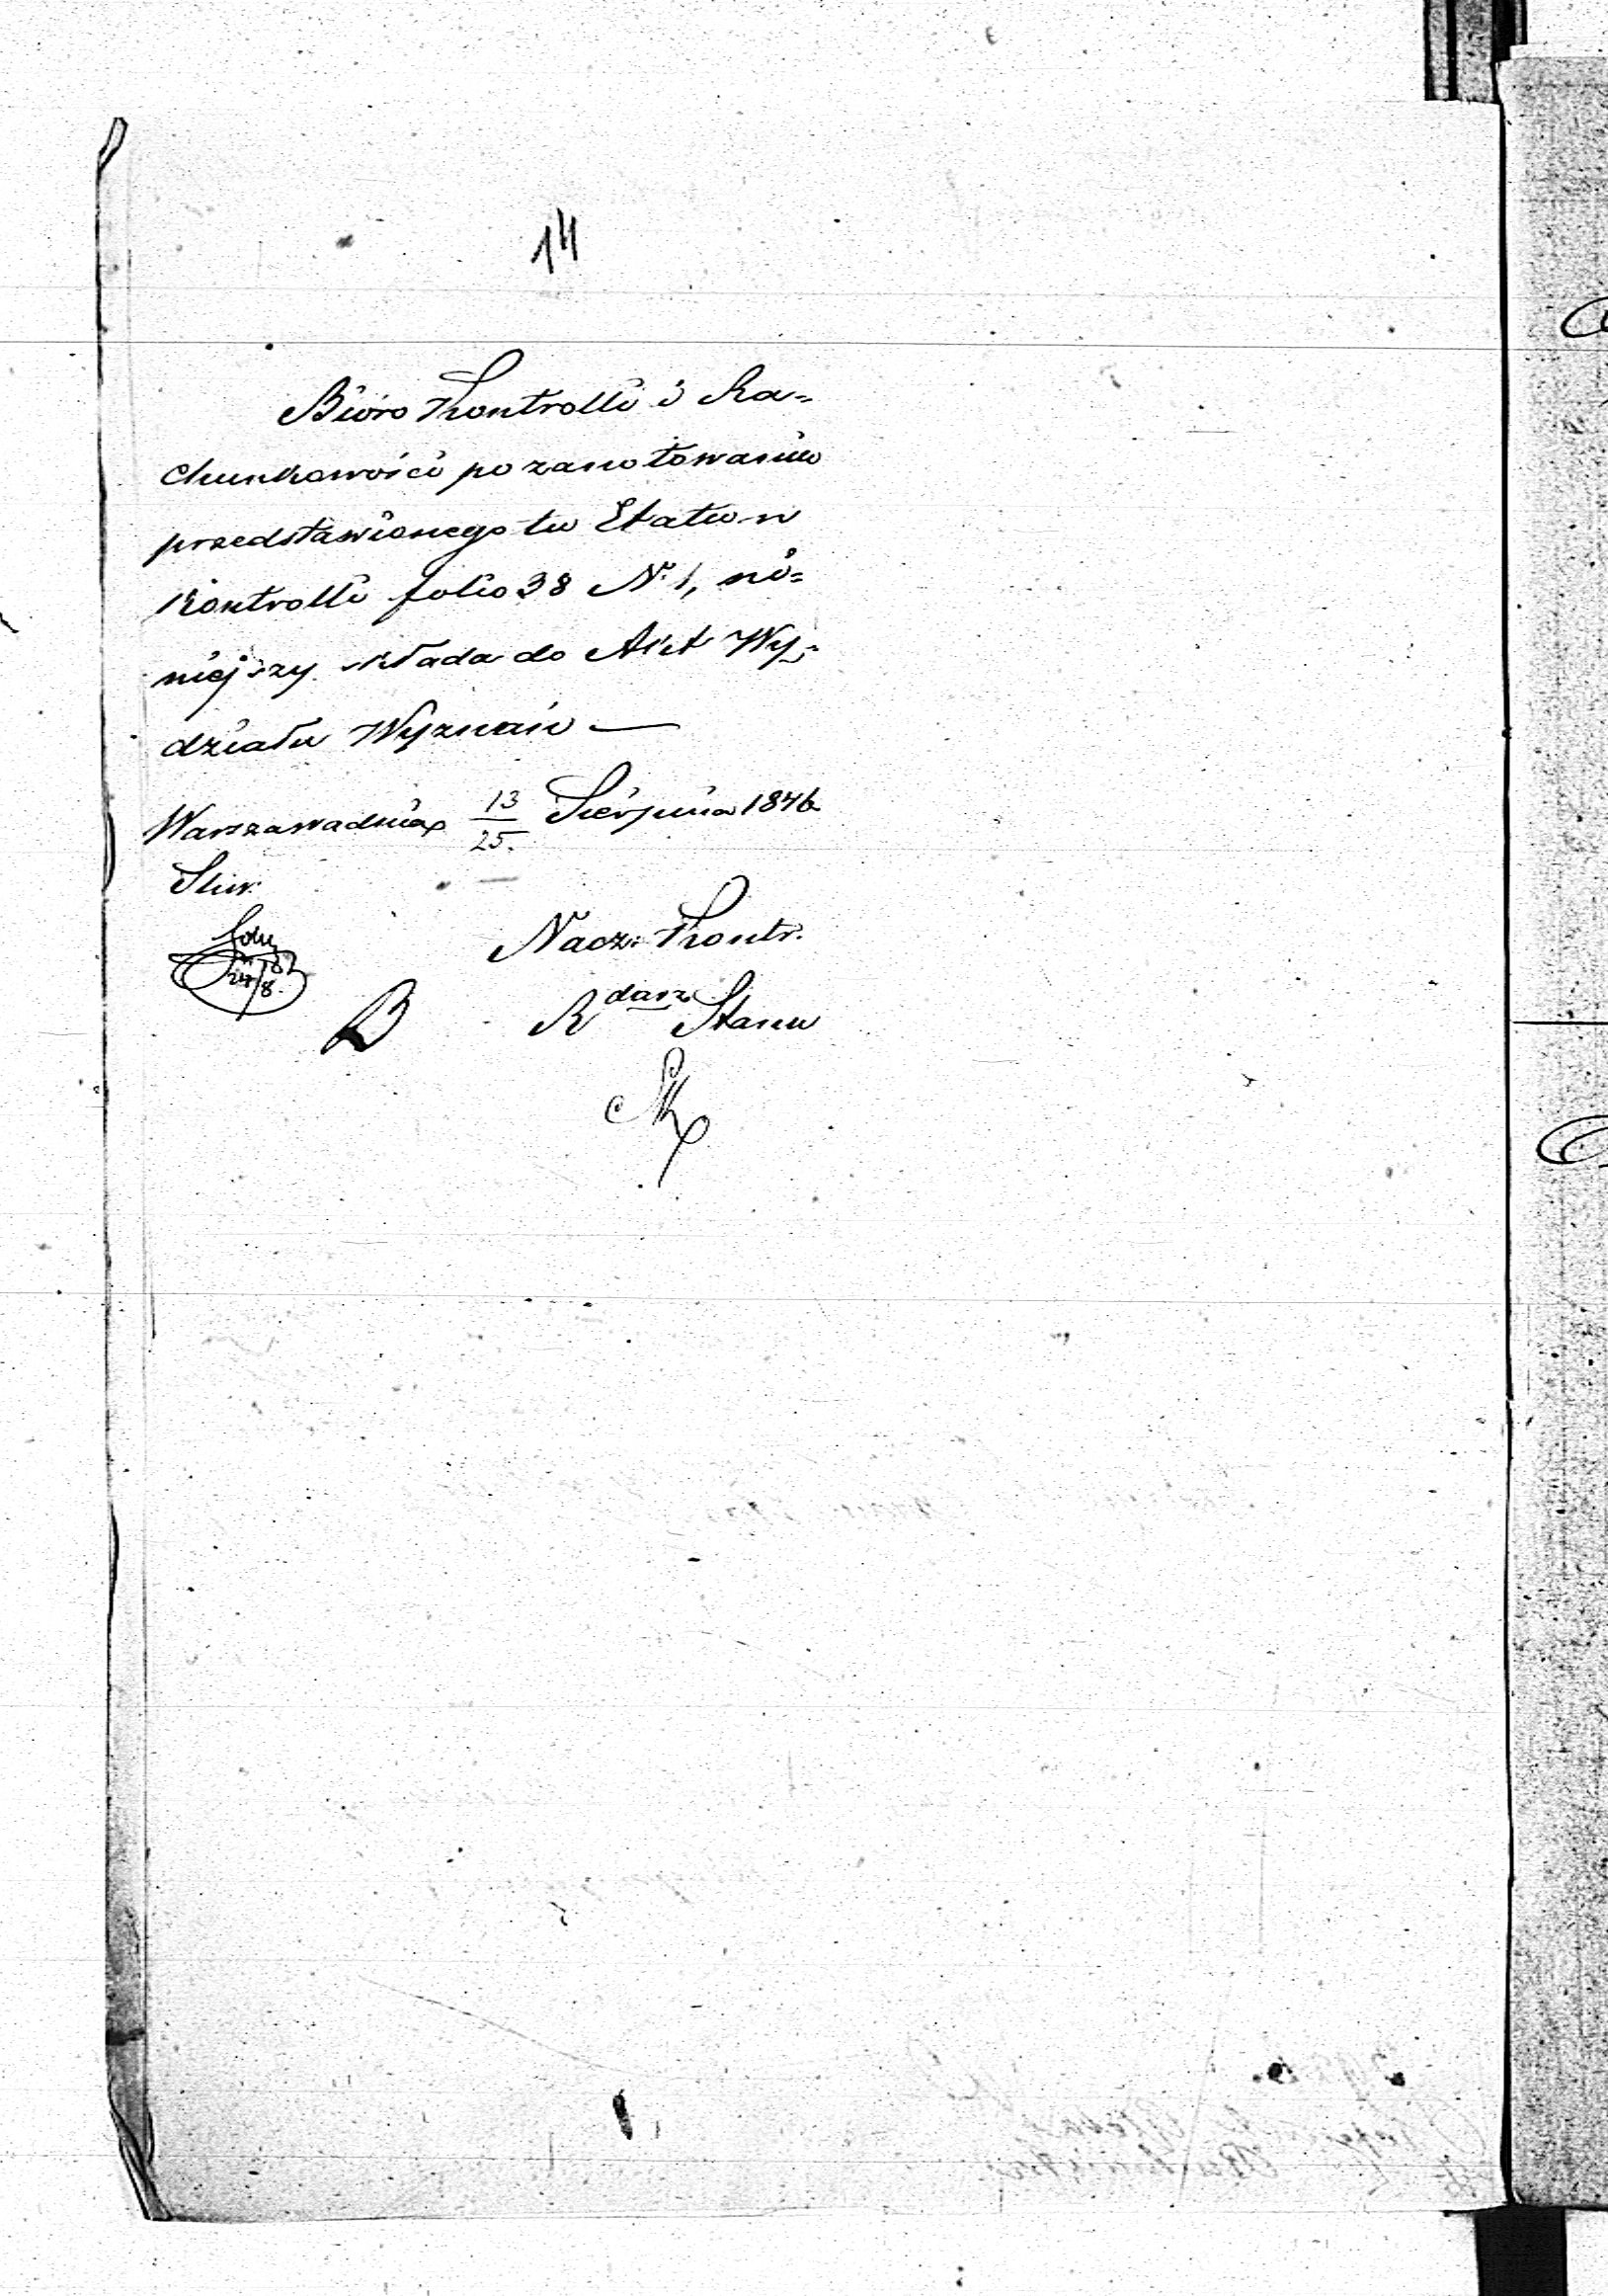 14
Bióro Kontrolli i Ra=
chunkowości po zanotowaniu
przedstawionego tu Etatu w
Kontrolli folio 38 N. 1, ni=
niejszy składa do Akt Wy=
działu Wyznań —
Warszawa dnia 13/25. Sierpnia 1846
Nacz: Kontr.
R darz Stanu